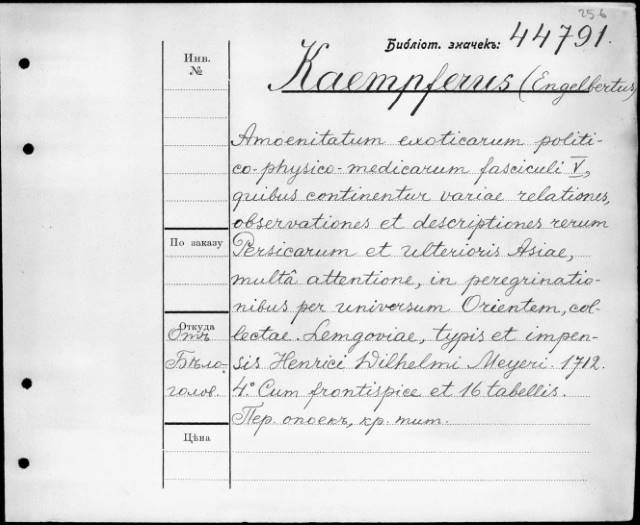 256
Библіот. значекъ: 44791.
Инв.
№
Kaempferus (Engelbertus)
Amoenitatum exoticarum politi-
co-physico-medicarum fasciculi V,
quibus continentur variae relationes,
observationes et descriptiones rerum
По заказу
Persicarum et ulterioris Asiae,
multâ attentione, in peregrinatio-
nibus per universum Orientem, col-
Откуда
Отъ
Бѣло-
голов.
lectae. Lemgoviae, typis et impen-
sis Henrici Wilhelmi Meyeri. 1712.
4.° Cum frontispice et 16 tabellis.
Пер. опоекъ, кр. тит.
Цѣна